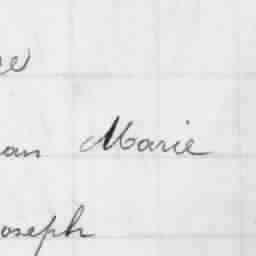 an Marie
oseph